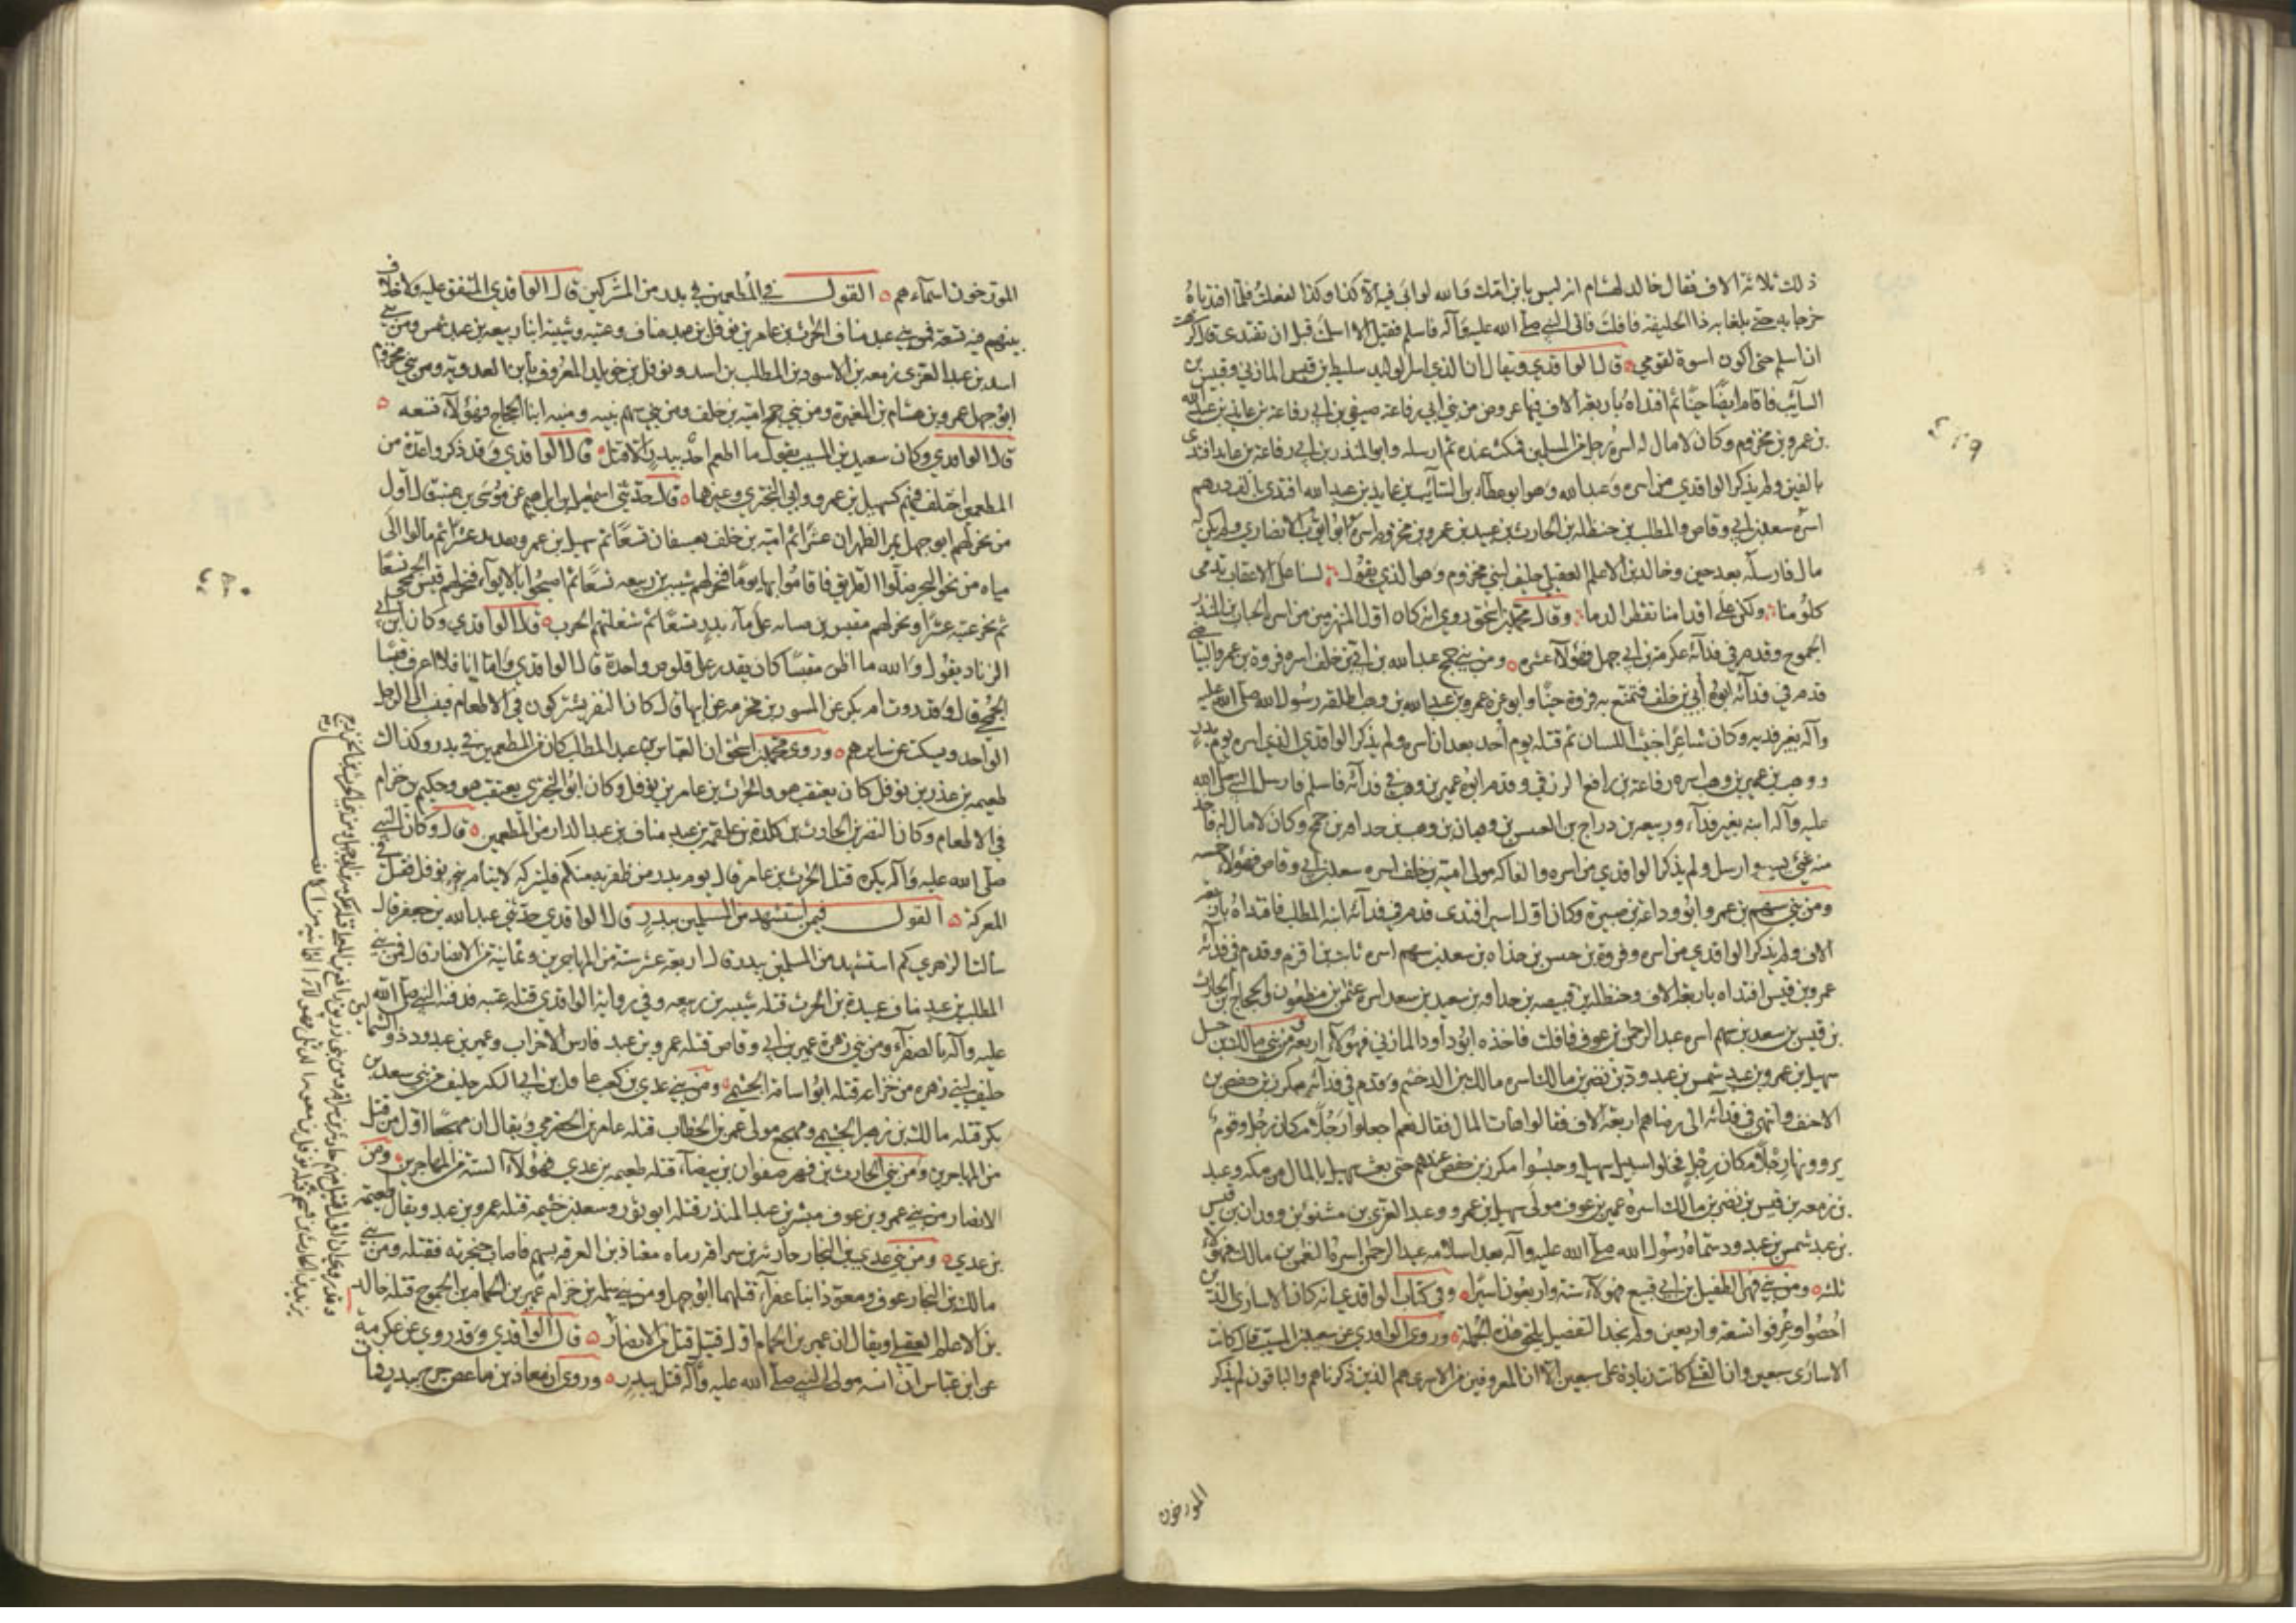 ذلك ثلاثة الاف فقال خالد لهشام انه ليس بابن امك والله لو ابى فيه الا كذا وكذا لفعلت فلما افتدياه
خرجا به حتى بلغا به ذا الحليفة فافلت فاتى النبي صلى الله عليه وآله فاسلم فقيل الا اسلمت قبل ان تفتدى قال كرهت
ان اسلم حتى اكون اسوة لقومي قال الواقدي ويقال ان الذي اسر الوليد سليط بن قيس المازني وقيس بن
السائب فاقام ايضا حينا ثم افتداه باربعة الاف فيها عروض من بني ابي رفاعة صيفي بن ابي رفاعة بن عائذ بن عبد الله
بن عمرو بن مخزوم وكان لا مال له اسره رجل من المسلمين فمكث عنده ثم ارسله وابو المنذر بن ابي رفاعة بن عايد افتدى
بالفين ولم يذكر الواقدي من اسره وعبد الله وهو ابو عطاء بن السائب بن عايد بن عبد الله افتدى بالف درهم
اسره سعد بن ابي وقاص والمطلب بن حنظلة بن الحارث بن عبيد بن عمرو بن مخزوم اسره ابو ايوب الانصاري ولم يكن له
مال فارسله بعد حين وخالد بن الاعلم العقيلي حليف لبني مخزوم وهو الذي يقول لسنا على الاعقاب تدمى
كلومنا ولكن على اقدامنا تقطر الدما وقال محمد بن اسحق روي انه كان اول المنهزمين اسره الحباب بن المنذر بن
الجموح وقدم في فدائه عكرمة بن ابي جهل فهؤلاء عشره ومن بني جمح عبد الله بن ابي بن خلف اسره فروة بن عمرو البياضي
قدم في فدائه ابوه ابي بن خلف فتمنع به فروة حينا وابو عزة عمرو بن عبد الله بن وهب اطلقه رسول الله صلى الله عليه
وآله بغير فدية وكان شاعرا خبيث اللسان ثم قتله يوم احد بعد ان اسره ولم يذكر الواقدي الذي اسره يوم بدر
ووهب بن عمير بن وهب اسره رفاعة بن رافع الزرقي وقدم ابوه عمير بن وهب في فدائه فاسلم فارسل النبي صلى الله
عليه وآله ابنه بغير فداء وربيعة بن دراج بن العنبس بن وهبان بن وهب بن حذافة بن جمح وكان لا مال له فاخذ
منه شيء يسير وارسل ولم يذكر الواقدي من اسره والفاكه مولى امية بن خلف اسره سعد بن ابي وقاص فهؤلاء خمسه
ومن بني سهم بن عمرو ابو وداعة بن صبيرة وكان اول اسير افتدى قدم في فدائه ابنه المطلب فافتداه باربعة
الاف ولم يذكر الواقدي من اسره وفروة بن خنيس بن حذافة بن سعد بن سهم اسره ثابت بن اقرم وقدم في فدائه
عمرو بن قيس افتداه باربعة الاف وحنظلة بن قبيصه بن حذافه بن سعيد بن سعد اسره عثمن بن مظعون والحجاج بن الحارث
بن قيس بن سعد بن سهم اسره عبد الرحمن بن عوف فافلت فاخذه ابو داود المازني فهؤلاء اربعه ومن بني مالك بن حسل
سهيل بن عمرو بن عبد شمس بن عبد ود بن نصر بن مالك اسره مالك بن الدخشم وقدم في فدائه مكرز بن حفص بن
الاخيف وانتهى في فدائه الى رضاهم اربعة الاف فقالوا هات المال فقال نعم اجعلوا رجلا مكان رجل وقوم
يروونها رجلا مكان رجل فخلوا سبيل سهيل وحبسوا مكرز بن حفص عندهم حتى بعث سهيل بالمال من مكه وعبد
بن زمعه بن قيس بن نصر بن مالك اسره عمير بن عوف مولى سهيل بن عمرو وعبد العزى بن مشنو بن وقدان بن قيس
بن عبد شمس بن عبد ود سماه رسول الله صلى الله عليه وآله بعد اسلامه عبد الرحمن اسره النعمن بن مالك فهؤلاء
ثلثه ومن بني فهر الطفيل بن ابي قنيع فهؤلاء ستة واربعون اسيرا وفي كتاب الواقدي انه كان الاسارى الذين
احصوا وعرفوا تسعة واربعين ولم نجد التفصيل يلحق هذه الجملة وروى الواقدي عن سعيد بن المسيب قال كانت
الاسارى سبعين وان القتلى كانت زيادة على سبعين الا ان المعروفين من الاسرى هم الذين ذكرناهم والباقون لم يذكر
المورخون
٤٢٩
المورخون اسماءهم القول في المطعمين في بدر من المشركين قال الواقدي المتفق عليه ولا خلاف
بينهم فيه تسعة فمن بني عبد مناف الحرث بن عامر بن نوفل بن عبد مناف وعتبه وشيبة ابنا ربيعه بن عبد شمس ومن بني
اسد بن عبد العزى زمعه بن الاسود بن المطلب بن اسد ونوفل بن خويلد المعروف بابن العدويه ومن بني مخزوم
ابو جهل عمرو بن هشام بن المغيرة ومن بني جمح امية بن خلف ومن بني سهم نبيه ومنبه ابنا الحجاج فهؤلاء تسعه
قال الواقدي وكان سعيد بن المسيب يقول ما اطعم احد ببدر الا قتل قال الواقدي وقد ذكروا عدة من
المطعمين اختلف فيهم كسهيل بن عمرو وابي البختري وغيرهما قال حدثني اسمعيل بن ابراهيم عن موسى بن عقبة قال اول
من نحر لهم ابو جهل بمر الظهران عشرا ثم امية بن خلف بعسفان تسعا ثم سهيل بن عمرو بقديد عشرا ثم مالوا الى
مياه من نحو البحر ضلوا الطريق فاقاموا بها يوما فنحر لهم شيبه بن ربيعه تسعا ثم اصبحوا بالابواء فنحر لهم قيس الجمحي تسعا
ثم نحر عتبة عشرا ونحر لهم مقيس بن صبابه على ماء بدر تسعا ثم شغلتهم الحرب قال الواقدي وكان ابن ابي
الزناد يقول والله ما اظن مقيسا كان يقدر على قلوص واحدة قال الواقدي واما انا فلا اعرف قيسا
الجمحي قال وقد روت ام بكر عن المسور بن مخرمه عن ابيها قال كان النفر يشتركون في الاطعام فينسب الى الرجل
الواحد ويسكت عن سايرهم وروى محمد بن اسحق ان العباس بن عبد المطلب كان من المطعمين في بدر وكذلك
طعيمه بن عدي بن نوفل كان يعتقب هو والحرث بن عامر بن نوفل وكان ابو البختري يعتقب هو وحكيم بن حزام
في الاطعام وكان النضر بن الحارث بن كلدة بن علقمه بن عبد مناف بن عبد الدار من المطعمين قال وكان النبي
صلى الله عليه وآله يكره قتل الحرث بن عامر قال يوم بدر من ظفر به منكم فليتركه لايتام بني نوفل فقتل في
المعركة القول فيمن استشهد من المسلمين ببدر قال الواقدي حدثني عبد الله بن جعفر قال
سالت الزهري كم استشهد من المسلمين ببدر قال اربعة عشر ستة من المهاجرين وثمانية من الانصار قال فمن بني
المطلب بن عبد مناف عبيدة بن الحرث قتله شيبه بن ربيعه وفي رواية الواقدي قتله عتبه فدفنه النبي صلى الله
عليه وآله بالصفراء ومن بني زهرة عمير بن ابي وقاص قتله عمرو بن عبد فارس الاحزاب وعمير بن عبد ود ذو الشمالين
حليف لبني زهره من خزاعه قتله ابو اسامة الجشمي ومن بني عدي بن كعب عاقل بن ابي البكير حليف من بني سعد بن
بكر قتله مالك بن زهير الجشمي ومهجع مولى عمر بن الخطاب قتله عامر بن الحضرمي ويقال ان مهجعا اول من قتل
من المهاجرين ومن بني الحارث بن فهر صفوان بن بيضاء قتله طعيمه بن عدي فهؤلاء الستة من المهاجرين ومن
الانصار من بني عمرو بن عوف مبشر بن عبد المنذر قتله ابو ثور وسعد بن خيثمه قتله عمرو بن عبد ويقال طعيمه
بن عدي ومن بني عدي بن النجار حارثه بن سراقه رماه حبان بن العرقه بسهم فاصاب حنجرته فقتله ومن بني
مالك بن النجار عوف ومعوذ ابنا عفراء قتلهما ابو جهل ومن بني سلمه بن حرام عمير بن الحمام بن الجموح قتله خالد
بن الاعلم العقيلي ويقال ان عمير بن الحمام اول قتيل قتل من الانصار قال الواقدي وقد روي عن عكرمة
عن ابن عباس ان انسه مولى النبي صلى الله عليه وآله قتل ببدر وروي ان معاذ بن ماعص جرح ببدر فمات